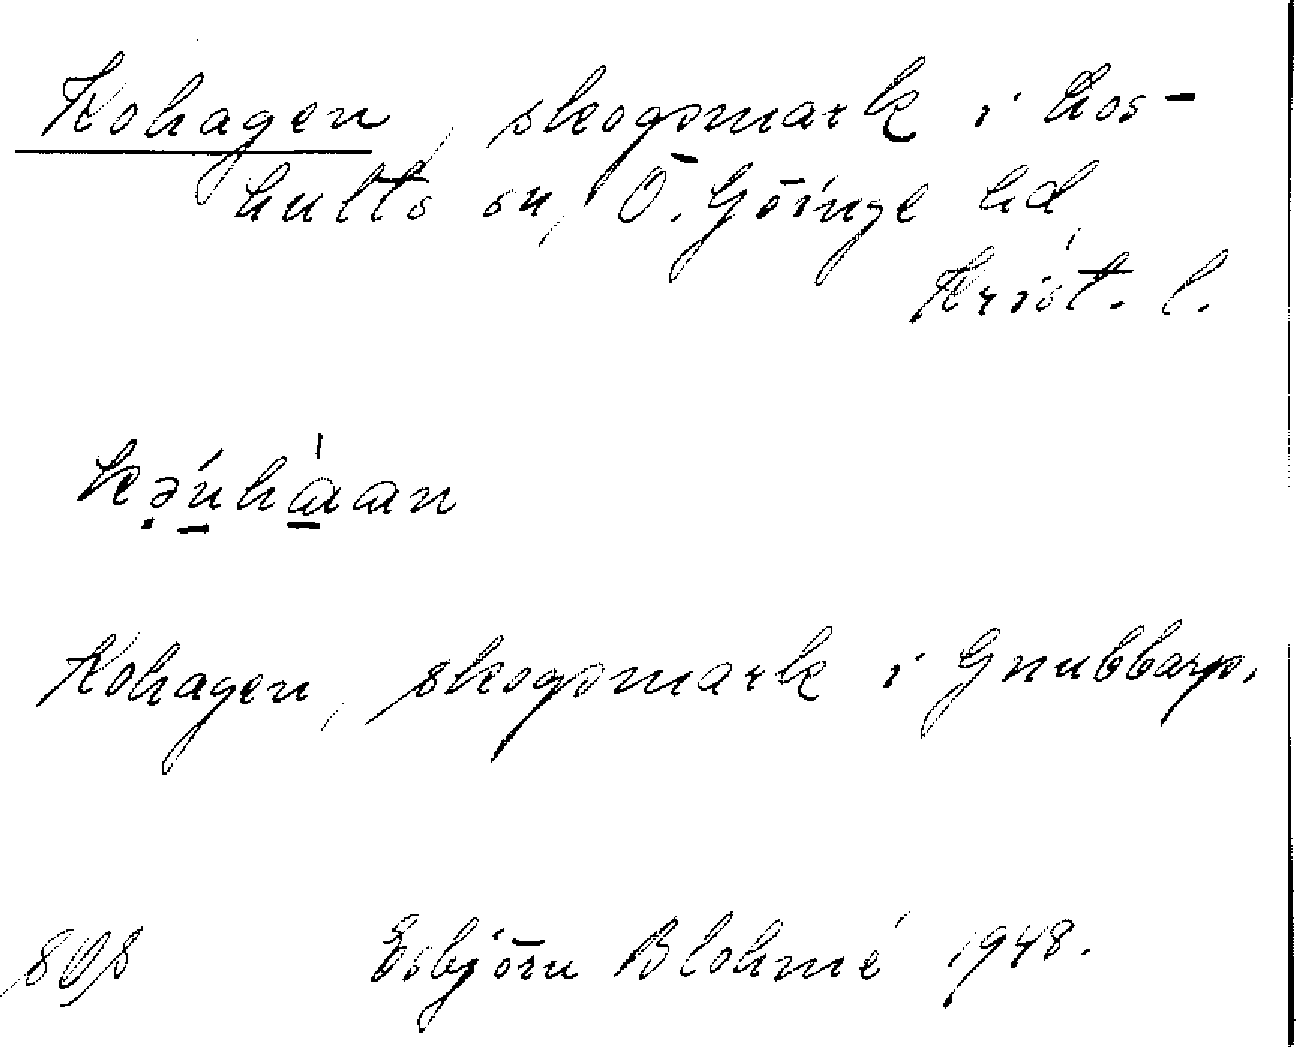 Kohagen, skogsmark i Los-
hults sn, Ö. Göinge hd,
Krist. l.
kə̣úhàan
Kohagen, skogsmark i Gnubbarp.
808 Esbjörn Blohmé 1948.